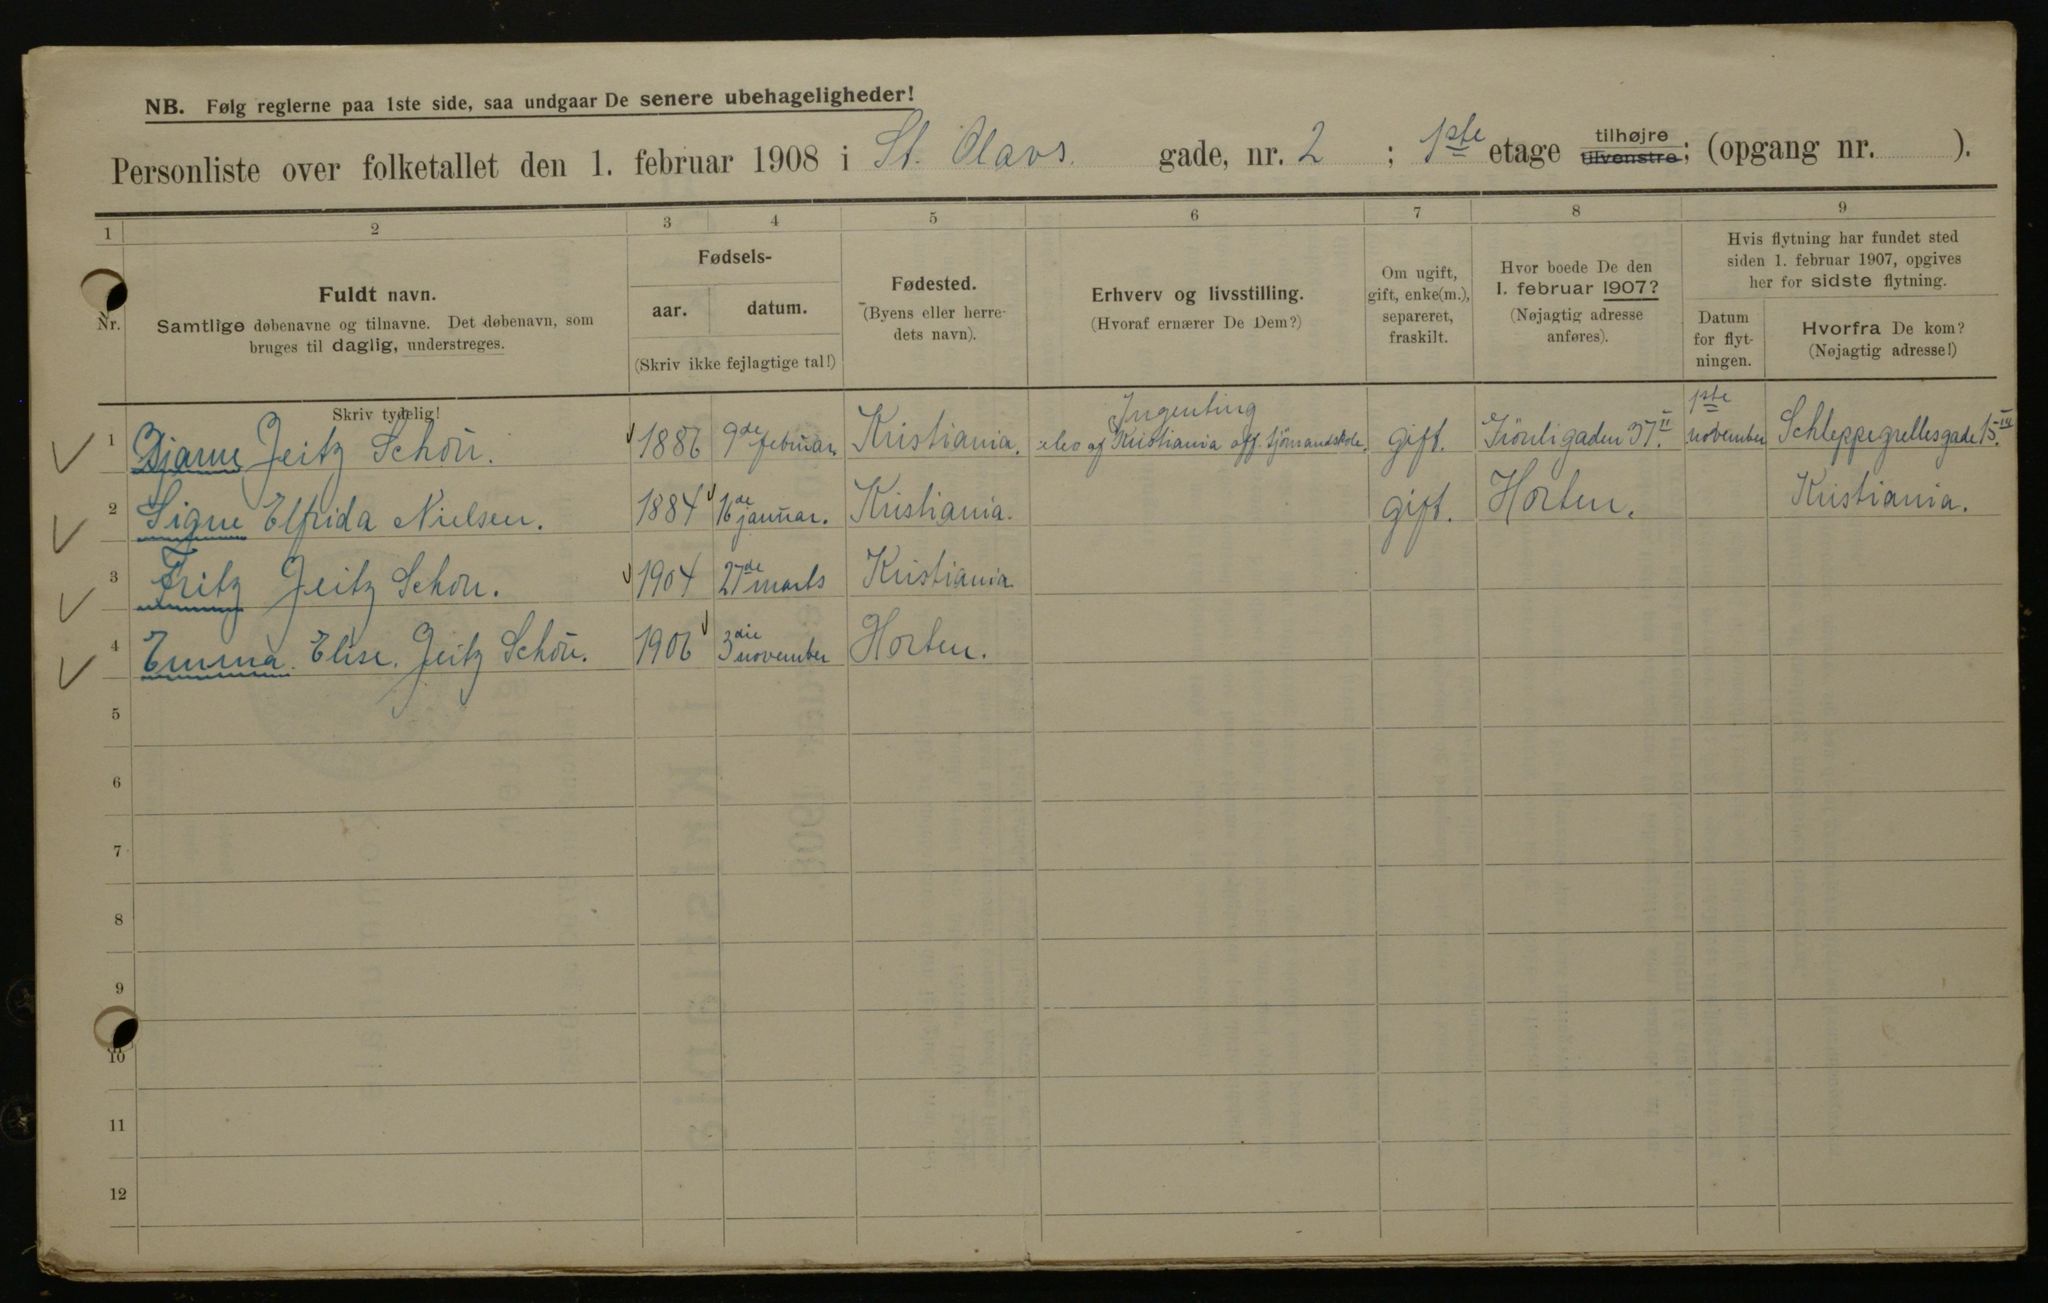 NB. Følg reglerne paa 1ste side, saa undgaar De senere ubehageligheder!
Personliste over folketallet den 1. februar 1908 i St. Olavs gade, nr. 2 ; 1ste etage tilhøjre tilvenstre; (opgang nr. ).
1 2 3 4 5 6 7 8 9
Nr.
Fuldt navn.
Samtlige døbenavne og tilnavne. Det døbenavn, som
bruges til daglig, understreges.
Fødsels-
aar. datum.
(Skriv ikke fejlagtige tal!)
Fødested.
(Byens eller herre-
dets navn).
Erhverv og livsstilling.
(Hvoraf ernærer De Dem?)
Om ugift,
gift, enke(m.),
separeret,
fraskilt.
Hvor boede De den
1. februar 1907?
(Nøjagtig adresse
anføres).
Hvis flytning har fundet sted
siden 1. februar 1907, opgives
her for sidste flytning.
Datum
for flyt-
ningen.
Hvorfra De kom?
(Nøjagtig adresse!)
Skriv tydelig!
Ingenting 1ste
1 Bjarne Jeitz Schön. 1886 9de februar. Kristiania. elev af Kristiania off. sjömandskole. gift. Grönligaden 37 II november Schleppegrellesgade 15 III
2 Signe Elfrida Nielsen. 1884 16de januar. Kristiania. gift. Horten. Kristiania.
3 Fritz Jeitz Schön. 1904 27de marts Kristiania
4 Emma. Elise. Jeitz Schön. 1906 3die november Horten.
5
6
7
8
9
10
11
12